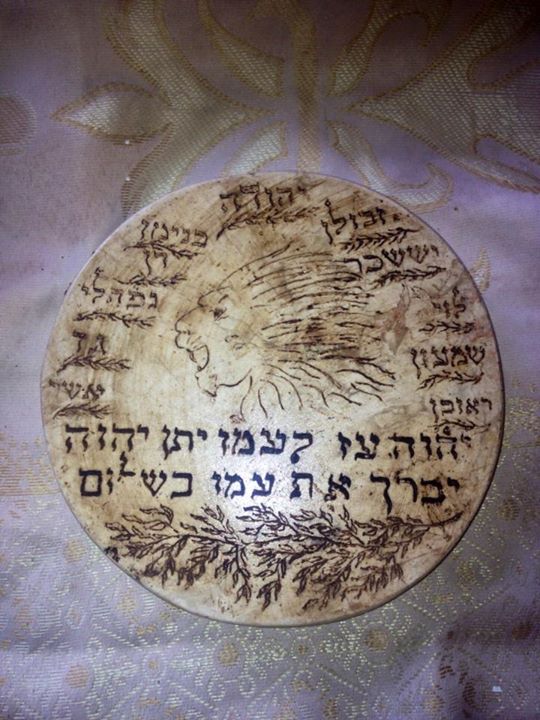 יהודה
זבולן
יששכר
לוי
שמעון
ראובן
בנימן
דן
נפתלי
גד
אשר
יהוה עז לעמו יתן יהוה
יברך את עמו בשלום